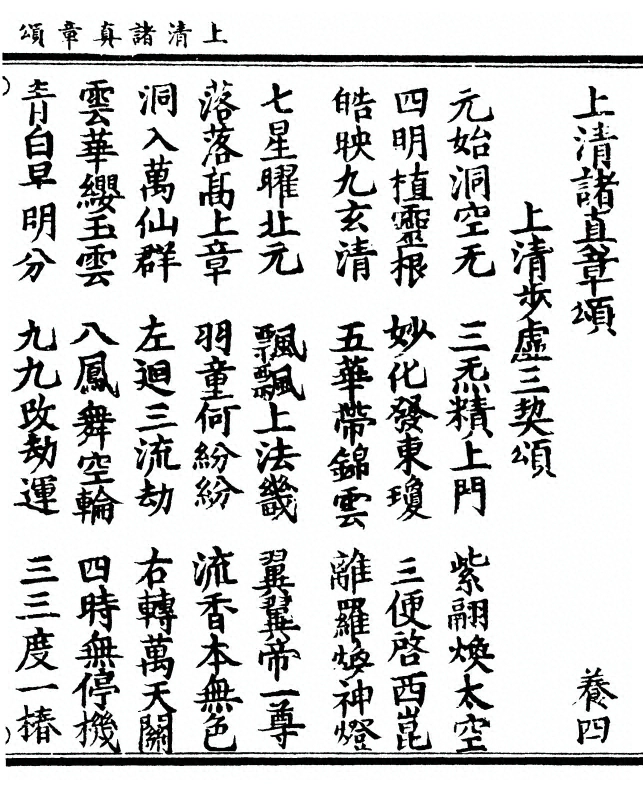 上清諸真章頌
上清諸真章頌 養四
上清步虛三契頌
元始洞空无 三炁精上門 紫翮煥太空
四明植靈根 妙化發東瓊 三便啓西崑
皓映九玄清 五華帶錦雲 離羅煥神燈
七星曜北元 飄飄上法幾 翼翼帝一尊
落落高上章 羽童何紛紛 流香本無色
洞入萬仙群 左迴三流劫 右轉萬天關
雲華纓玉雲 八鳳舞空輪 四時無停機
青白早明分 九九改劫運 三三度一椿